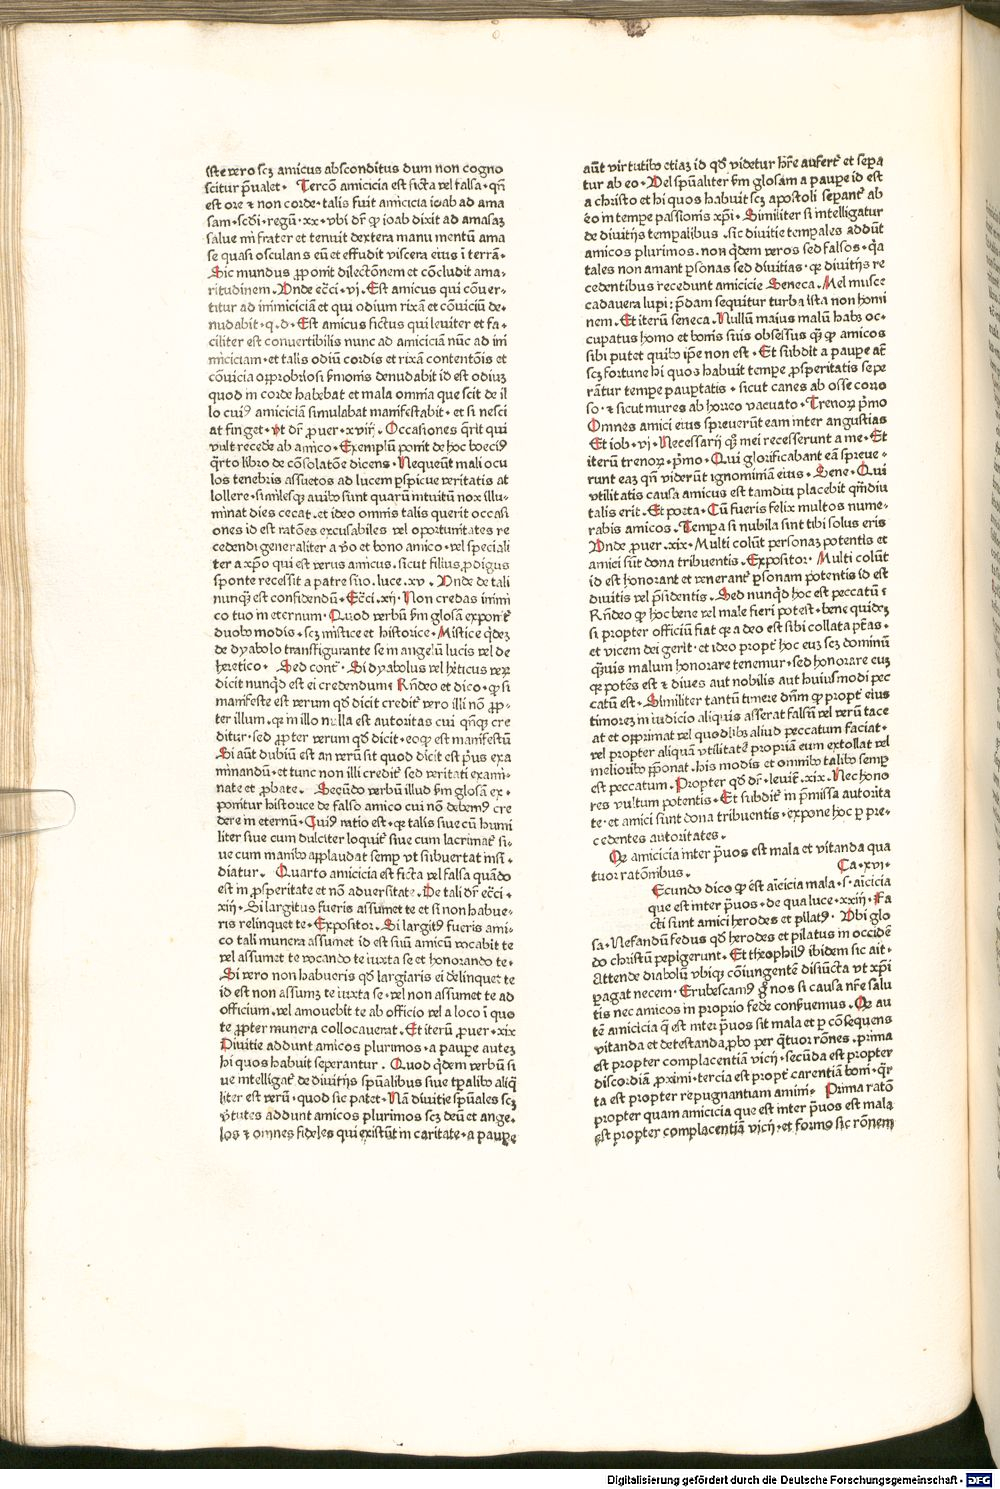 iste vero scꝫ amicus absconditus dum non cogno
scitur p̄ualet. Tercō amicicia est ficta vel falsa. qn̄
est ore ⁊ non corde. talis fuit amicicia ioab ad ama
sam. scd̄i. regū. xx. vbi dr̄ ꝙ ioab dixit ad amasaꝫ
salue mi frater et tenuit dextera manu mentū ama
se quasi osculans eū et effudit viscera eius ī terrā.
Sic mundus ꝓponit dilectōnem et cōcludit ama-
ritudinem. Vnde ecc̄i. vi. Est amicus qui cōuer-
titur ad inimiciciā et qui odium rixā et cōuiciū de-
nudabit. q. d. Est amicus fictus qui leuiter et fa-
ciliter est conuertibilis nunc ad amiciciā nūc ad ini
miciciam. et talis odiū cordis et rixā contentōis et
cōuicia opprobriosi s̄monis denudabit id est odiuꝫ
quod in corde habebat et mala omnia que scit de il
lo cui⁹ amiciciā simulabat manifestabit. et si nesci
at finget. vt dr̄ ꝓuer. xviij. Occasiones q̄rit qui
vult recede ab amico. Exemplū ponit de hoc boeci⁹
q̄rto libro de cōsolatōne dicens. Nequeūt mali ocu
los tenebris assuetos ad lucem ꝑspicue veritatis at
tollere. similesqꝫ auibꝰ sunt quarū intuitū nox illu-
minat dies cecat. et ideo omnis talis querit occasi
ones id est ratōes excusabiles vel oportunitates re
cedendi generaliter a v̄o et bono amico. vel speciali
ter a xp̄o qui est verus amicus. sicut filius ꝓdigus
sponte recessit a patre suo. luce. xv. Vnde de tali
nunqꝫ est confidendū. Ecc̄i. xij. Non credas inimi
co tuo in eternum. Quod verbū s̄m glosā exponit᷑
duobꝰ modis. scꝫ mistice et historice. Mistice q̄deꝫ
de dyabolo transfigurante se in angelū lucis vel de
heretico. Sed cont᷑. Si dyabolus vel heticus verꝝ
dicit nunqd est ei credendum? Rn̄deo et dico. ꝙ si
manifeste est verum qd̄ dicit credit᷑ vero illi nō ꝓp-
ter illum. qꝛ in illo nulla est autoritas cui qn̄qꝫ cre
ditur. sed ꝓpter verum qd̄ dicit. eo ꝙ est manifestū
Si aūt dubiū est an verū sit quod dicit est p̄us exa
minandū. et tunc non illi credit᷑ sed veritati exami-
nate et ꝓbate. Secūdo verbū illud s̄m glosā ex-
ponitur historice de falso amico cui nō debem⁹ cre
dere in eternū. Cui⁹ ratio est. qꝛ talis siue cū humi
liter siue cum dulciter loquit᷑ siue cum lacrimat᷑ si-
ue cum manibꝰ applaudat semꝑ vt subuertat insi-
diatur. Quarto amicicia est ficta vel falsa quādo
est in ꝓsperitate et nō aduersitate. De tali dr̄ ecc̄i.
xiij. Si largitus fueris assumet te et si non habue-
ris relinquet te. Expositor. Si largit⁹ fueris ami-
co tali munera assumet id est suū amicū vocabit te
vel assumet te vocando te iuxta se et honorando te.
Si vero non habueris qd̄ largiaris ei delinquet te
id est non assumꝫ te iuxta se. vel non assumet te ad
officium. vel amouebit te ab officio vel a loco ī quo
te ꝓpter munera collocauerat. Et iterū ꝓuer. xix
Diuitie addunt amicos plurimos. a pauꝑe auteꝫ
hi quos habuit seperantur. Quod q̄dem verbū si
ue intelligat᷑ de diuitijs sp̄ualibus siue tp̄alibꝰ aliq̄
liter est verū. quod sic patet. Nā diuitie sp̄uales scꝫ
v̄tutes addunt amicos plurimos scꝫ deū et ange-
los ⁊ omnes fideles qui existūt in caritate. a pauꝑe
aūt virtutibꝰ etiaꝫ id qd̄ videtur hr̄e aufert᷑ et sepa
tur ab eo. Vel sp̄ualiter s̄m glosam a pauꝑe id est
a christo et hi quos habuit scꝫ apostoli seꝑant᷑ ab
eo in tempe passionis xp̄i. Similiter si intelligatur
de diuitijs temꝑalibus. sic diuitie temꝑales addūt
amicos plurimos. non q̄dem veros sed falsos. q̄a
tales non amant ꝑsonas sed diuitias. qꝛ diuitijs re
cedentibus recedunt amicicie Seneca. Mel musce
cadauera lupi: p̄dam sequitur turba ista non homi
nem. Et iterū seneca. Nullū maius malū habꝫ oc-
cupatus homo et bonis suis obsessus qꝫ ꝙ amicos
sibi putet quibꝰ ip̄e non est. Et subdit a pauꝑe at̄
scꝫ fortune hi quos habuit tempe ꝓsperitatis sepe
rātur tempe paupertatis. sicut canes ab osse corro
so. ⁊ sicut mures ab horreo vacuato. Trenoꝝ p̄mo
Omnes amici eius spreuerūt eam inter angustias
Et iob. vi. Necessarij qꝫ mei recesserunt a me. Et
iterū trenoꝝ. p̄mo. Qui glorificabant eā spreue-
runt eaꝫ qn̄ viderūt ignominiā eius. Sene. Qui
vtilitatis causa amicus est tamdiu placebit qm̄diu
talis erit. Et poeta. Cū fueris felix multos nume-
rabis amicos. Tempa si nubila sint tibi solus eris
Vnde ꝓuer. xix. Multi colūt personaꝫ potentis et
amici sūt dona tribuentis. Expositor. Multi colūt
id est honorant et venerant᷑ ꝑsonam potentis id est
diuitis vel p̄sidentis. Sed nunqd hoc est peccatū?
Rn̄deo ꝙ hoc bene vel male fieri potest. bene quideꝫ
si propter officiū fiat qꝛ a deo est sibi collata pt̄as.
et vicem dei gerit. et ideo propt᷑ hoc euꝫ scꝫ dominū
qꝫuis malum honorare tenemur. sed honorare euꝫ
qꝛ potēs est ⁊ diues aut nobilis aut huiusmodi pec
catū est. Similiter tantū timere dn̄m ꝙ propt᷑ eius
timoreꝫ in iudicio aliquis asserat falsū vel verū tace
at et opprimat vel quodlibꝫ aliud peccatum faciat.
vel propter aliquā vtilitatē propriā eum extollat vel
melioribꝰ p̄ponat. his modis et omnibꝰ talibꝰ semꝑ
est peccatum. Propter qd̄ dr̄. leuit᷑. xix. Nec hono
res vultum potentis. Et subdit᷑ in p̄missa autorita
te. et amici sunt dona tribuentis. expone hoc ꝑ pre-
cedentes autoritates.
Qꝛ amicicia inter p̄uos est mala et vitanda qua
tuor ratōnibus. Ca. xvi.
Ecundo dico ꝙ est aīcicia mala. s. aīcicia
que est inter p̄uos. de qua luce. xxiij. Fa
cti sunt amici herodes et pilat⁹. Vbi glo
sa. Nefandū fedus qd̄ herodes et pilatus in occidē
do christū pepigerunt. Et theophil⁹ ibidem sic ait.
Attende diabolū vbiqꝫ cōiungentē disiūcta vt xp̄i
ꝑagat necem. Erubescam⁹ g̊ nos si causa nr̄e salu
tis nec amicos in proprio fede conseruemus. Qꝛ au
tē amicicia q̄ est inter p̄uos sit mala et ꝑ cōsequens
vitanda et detestanda ꝓbo per q̄tuor rōnes. prima
est propter complacentiā vicij. secūda est propter
discordiā ꝓximi. tercia est propt᷑ carentiā boni. q̄r
ta est propter repugnantiam animi. Prima ratō
propter quam amicicia que est inter p̄uos est mala
est propter complacentiā vicij. et formo sic rōnem
Digitalisierung gefördert durch die Deutsche Forschungsgemeinschaft - DFG